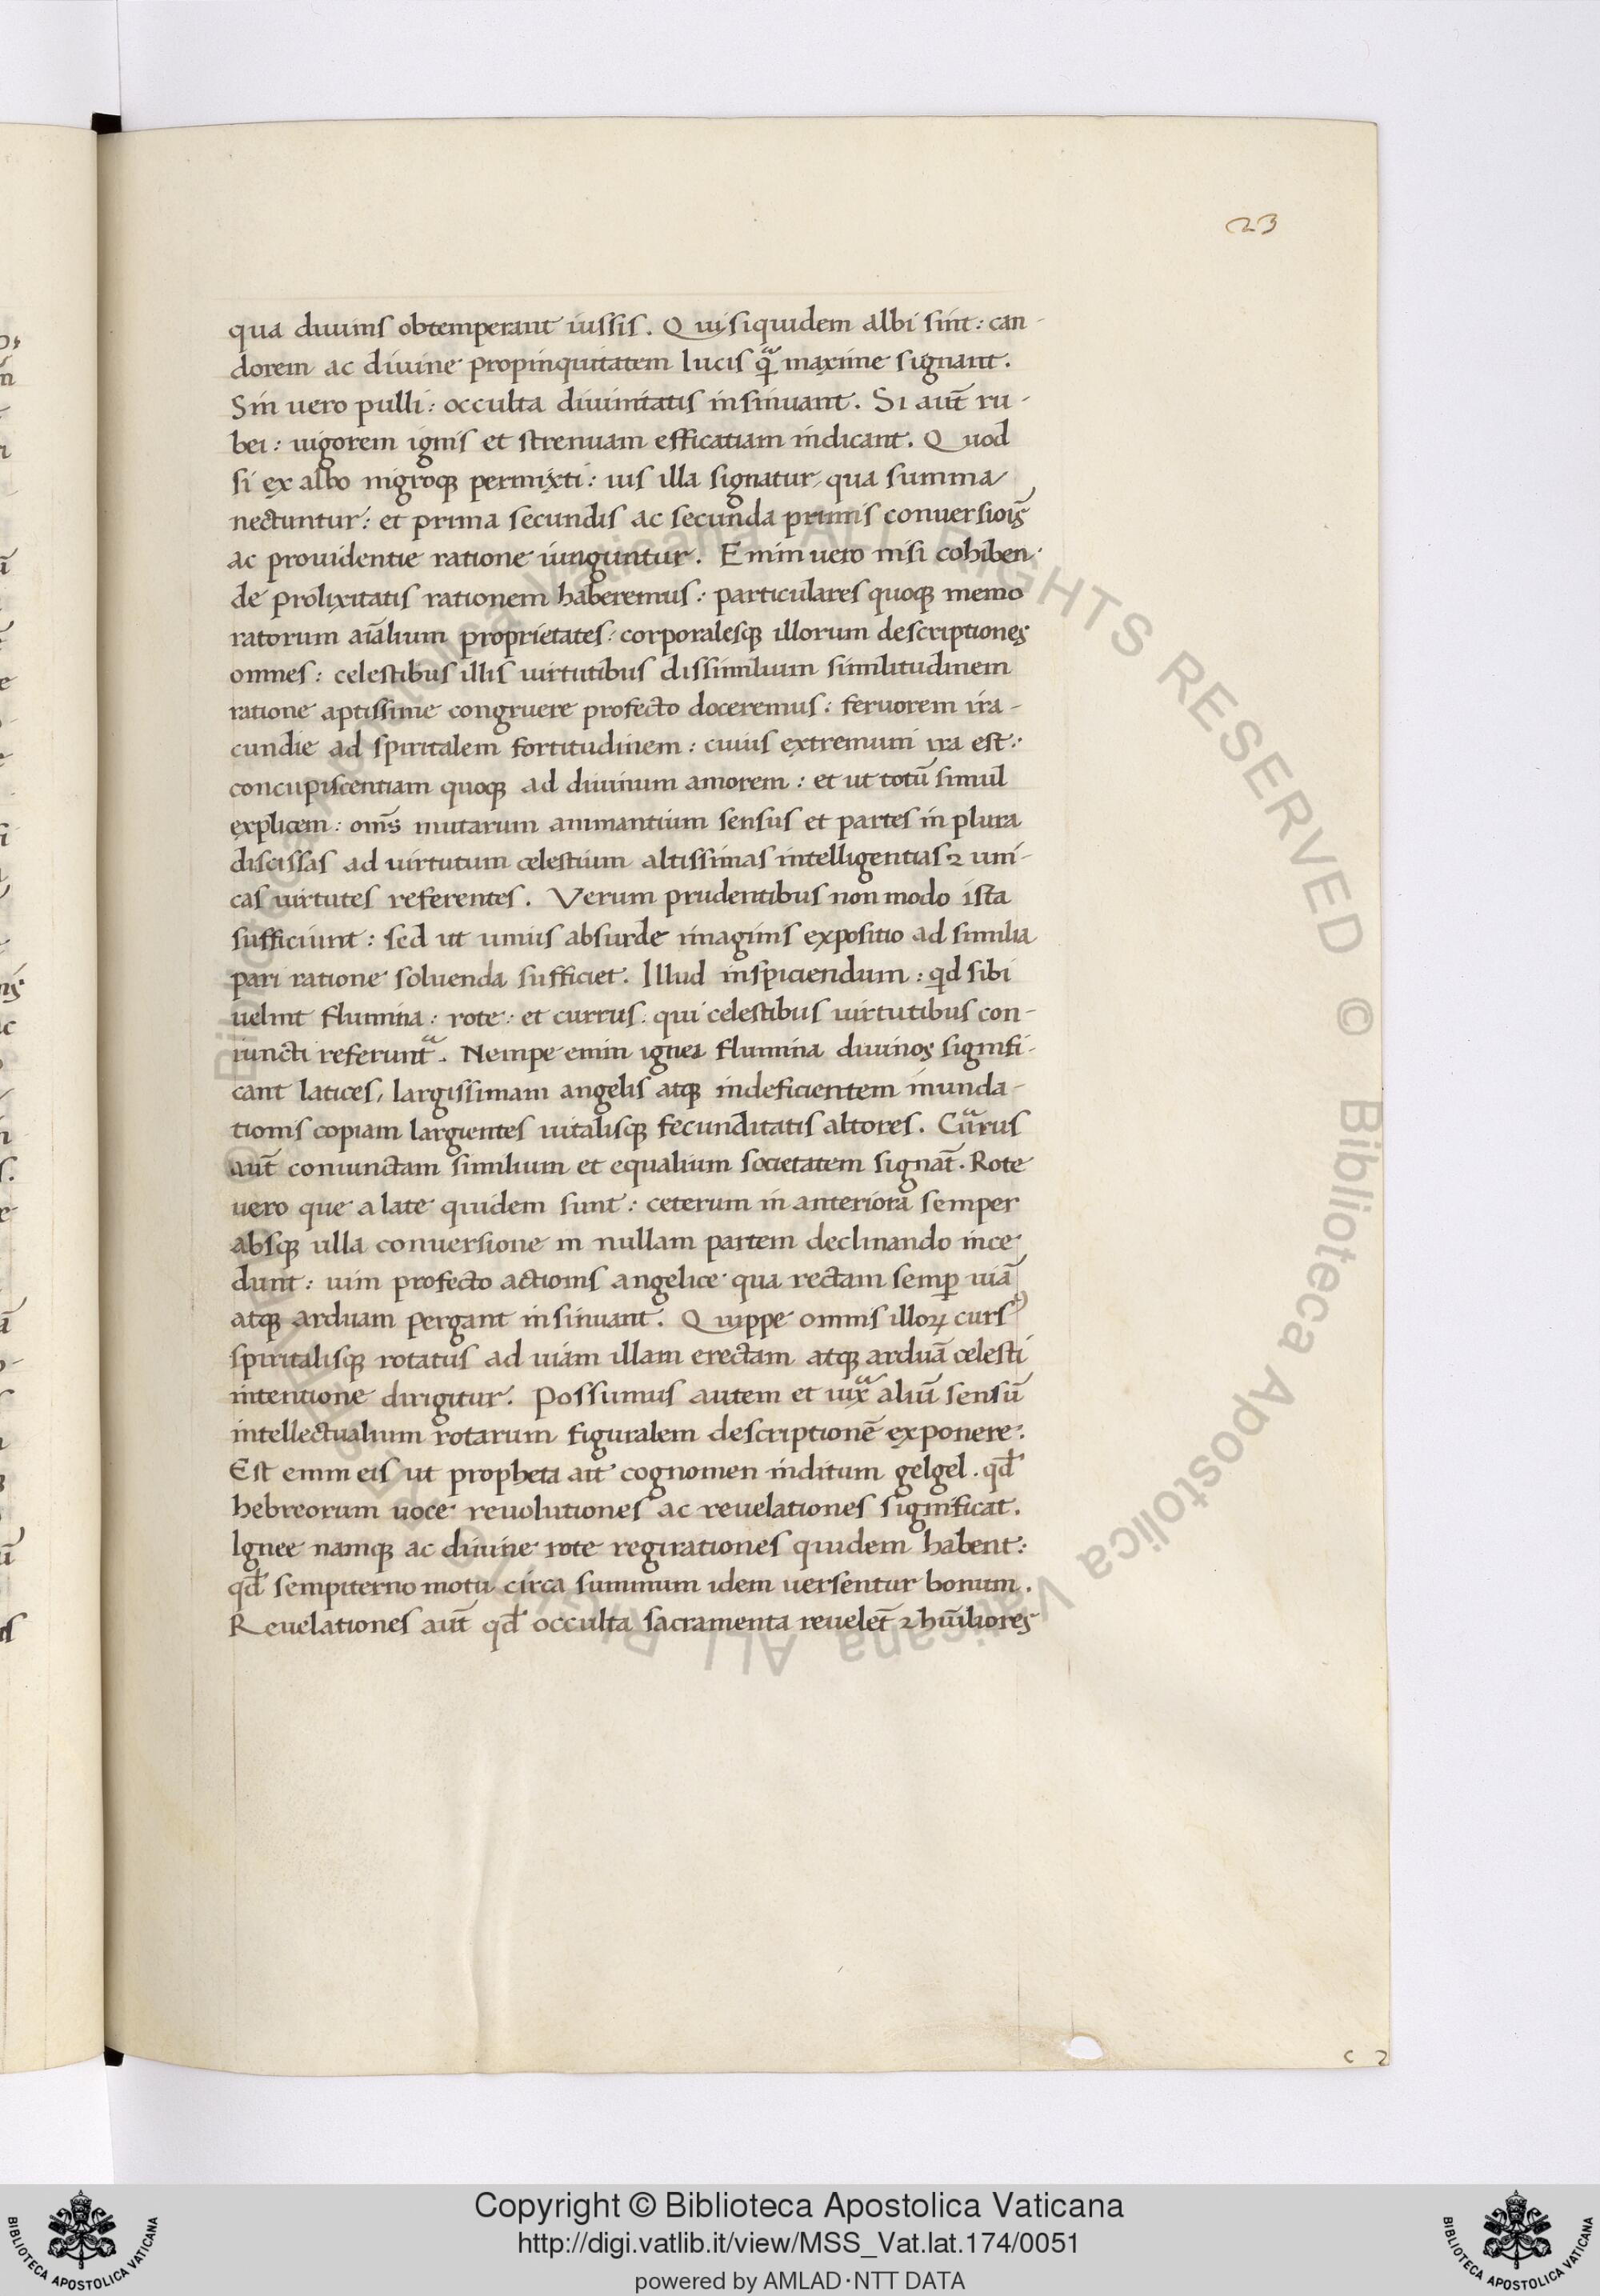 23
qua diuinis obtemperant iussis. Qui siquidem albi sint: can-
dorem ac diuine propinquitatem lucis q̃ maxime signant.
Sin uero pulli: occulta diuinitatis insinuant. Si aut̃ ru-
bei: uigorem ignis et strenuam efficatiam indicant. Quod
si ex albo nigroqꝫ permixti: uis illa signatur, qua summa
nectuntur: et prima secundis ac secunda primis conuersiõis
ac prouidentie ratione iunguntur. Enim uero nisi cohiben-
de prolixitatis rationem haberemus: particulares quoqꝫ memo
ratorum aĩalium proprietates: corporalesqꝫ illorum descriptiones
omnes: celestibus illis uirtutibus dissimilium similitudinem
ratione aptissime congruere profecto doceremus: feruorem ira-
cundie ad spiritalem fortitudinem: cuius extremum ira est:
concupiscentiam quoqꝫ ad diuinum amorem: et ut totũ simul
explicem: om̃s mutarum animantium sensus et partes in plura
discissas ad uirtutum celestium altissimas intelligentias ⁊ uni-
cas uirtutes referentes. Verum prudentibus non modo ista
sufficiunt: sed ut unius absurde imaginis expositio ad similia
pari ratione soluenda sufficiet. Illud inspiciendum: qd sibi
uelint flumina: rote: et currus: qui celestibus uirtutibus con-
iuncti referunt̃. Nempe enim ignea flumina diuinos signifi-
cant latices, largissimam angelis atqꝫ indeficientem inunda-
tionis copiam largientes uitalisqꝫ fecunditatis altores. Cũrus
aut̃ coniunctam similium et equalium societatem signãt. Rote
uero que alate quidem sunt: ceterum in anteriora semper
absqꝫ ulla conuersione in nullam partem declinando ince-
dunt: uim profecto actionis angelice qua rectam semꝑ uiã
atqꝫ arduam pergant insinuant. Quippe omnis illoꝝ cursꝰ
spiritalisqꝫ rotatus ad uiam illam erectam atqꝫ arduã celesti
intentione dirigitur. Possumus autem et iux̃ aliũ sensũ
intellectualium rotarum figuralem descriptionẽ exponere:
Est enim eis ut propheta ait cognomen inditum gelgel. qd̃
hebreorum uoce reuolutiones ac reuelationes significat.
Ignee namqꝫ ac diuine rote regirationes quidem habent:
qd̃ sempiterno motu circa summum idem uersentur bonum.
Reuelationes aut̃ qd̃ occulta sacramenta reuelet̃ ⁊ hũiliores
c 2
© Biblioteca Apostolica Vaticana ALL RIGHTS RESERVED
Copyright © Biblioteca Apostolica Vaticana
http://digi.vatlib.it/view/MSS_Vat.lat.174/0051
powered by AMLAD·NTT DATA
BIBLIOTECA APOSTOLICA VATICANA
BIBLIOTECA APOSTOLICA VATICANA